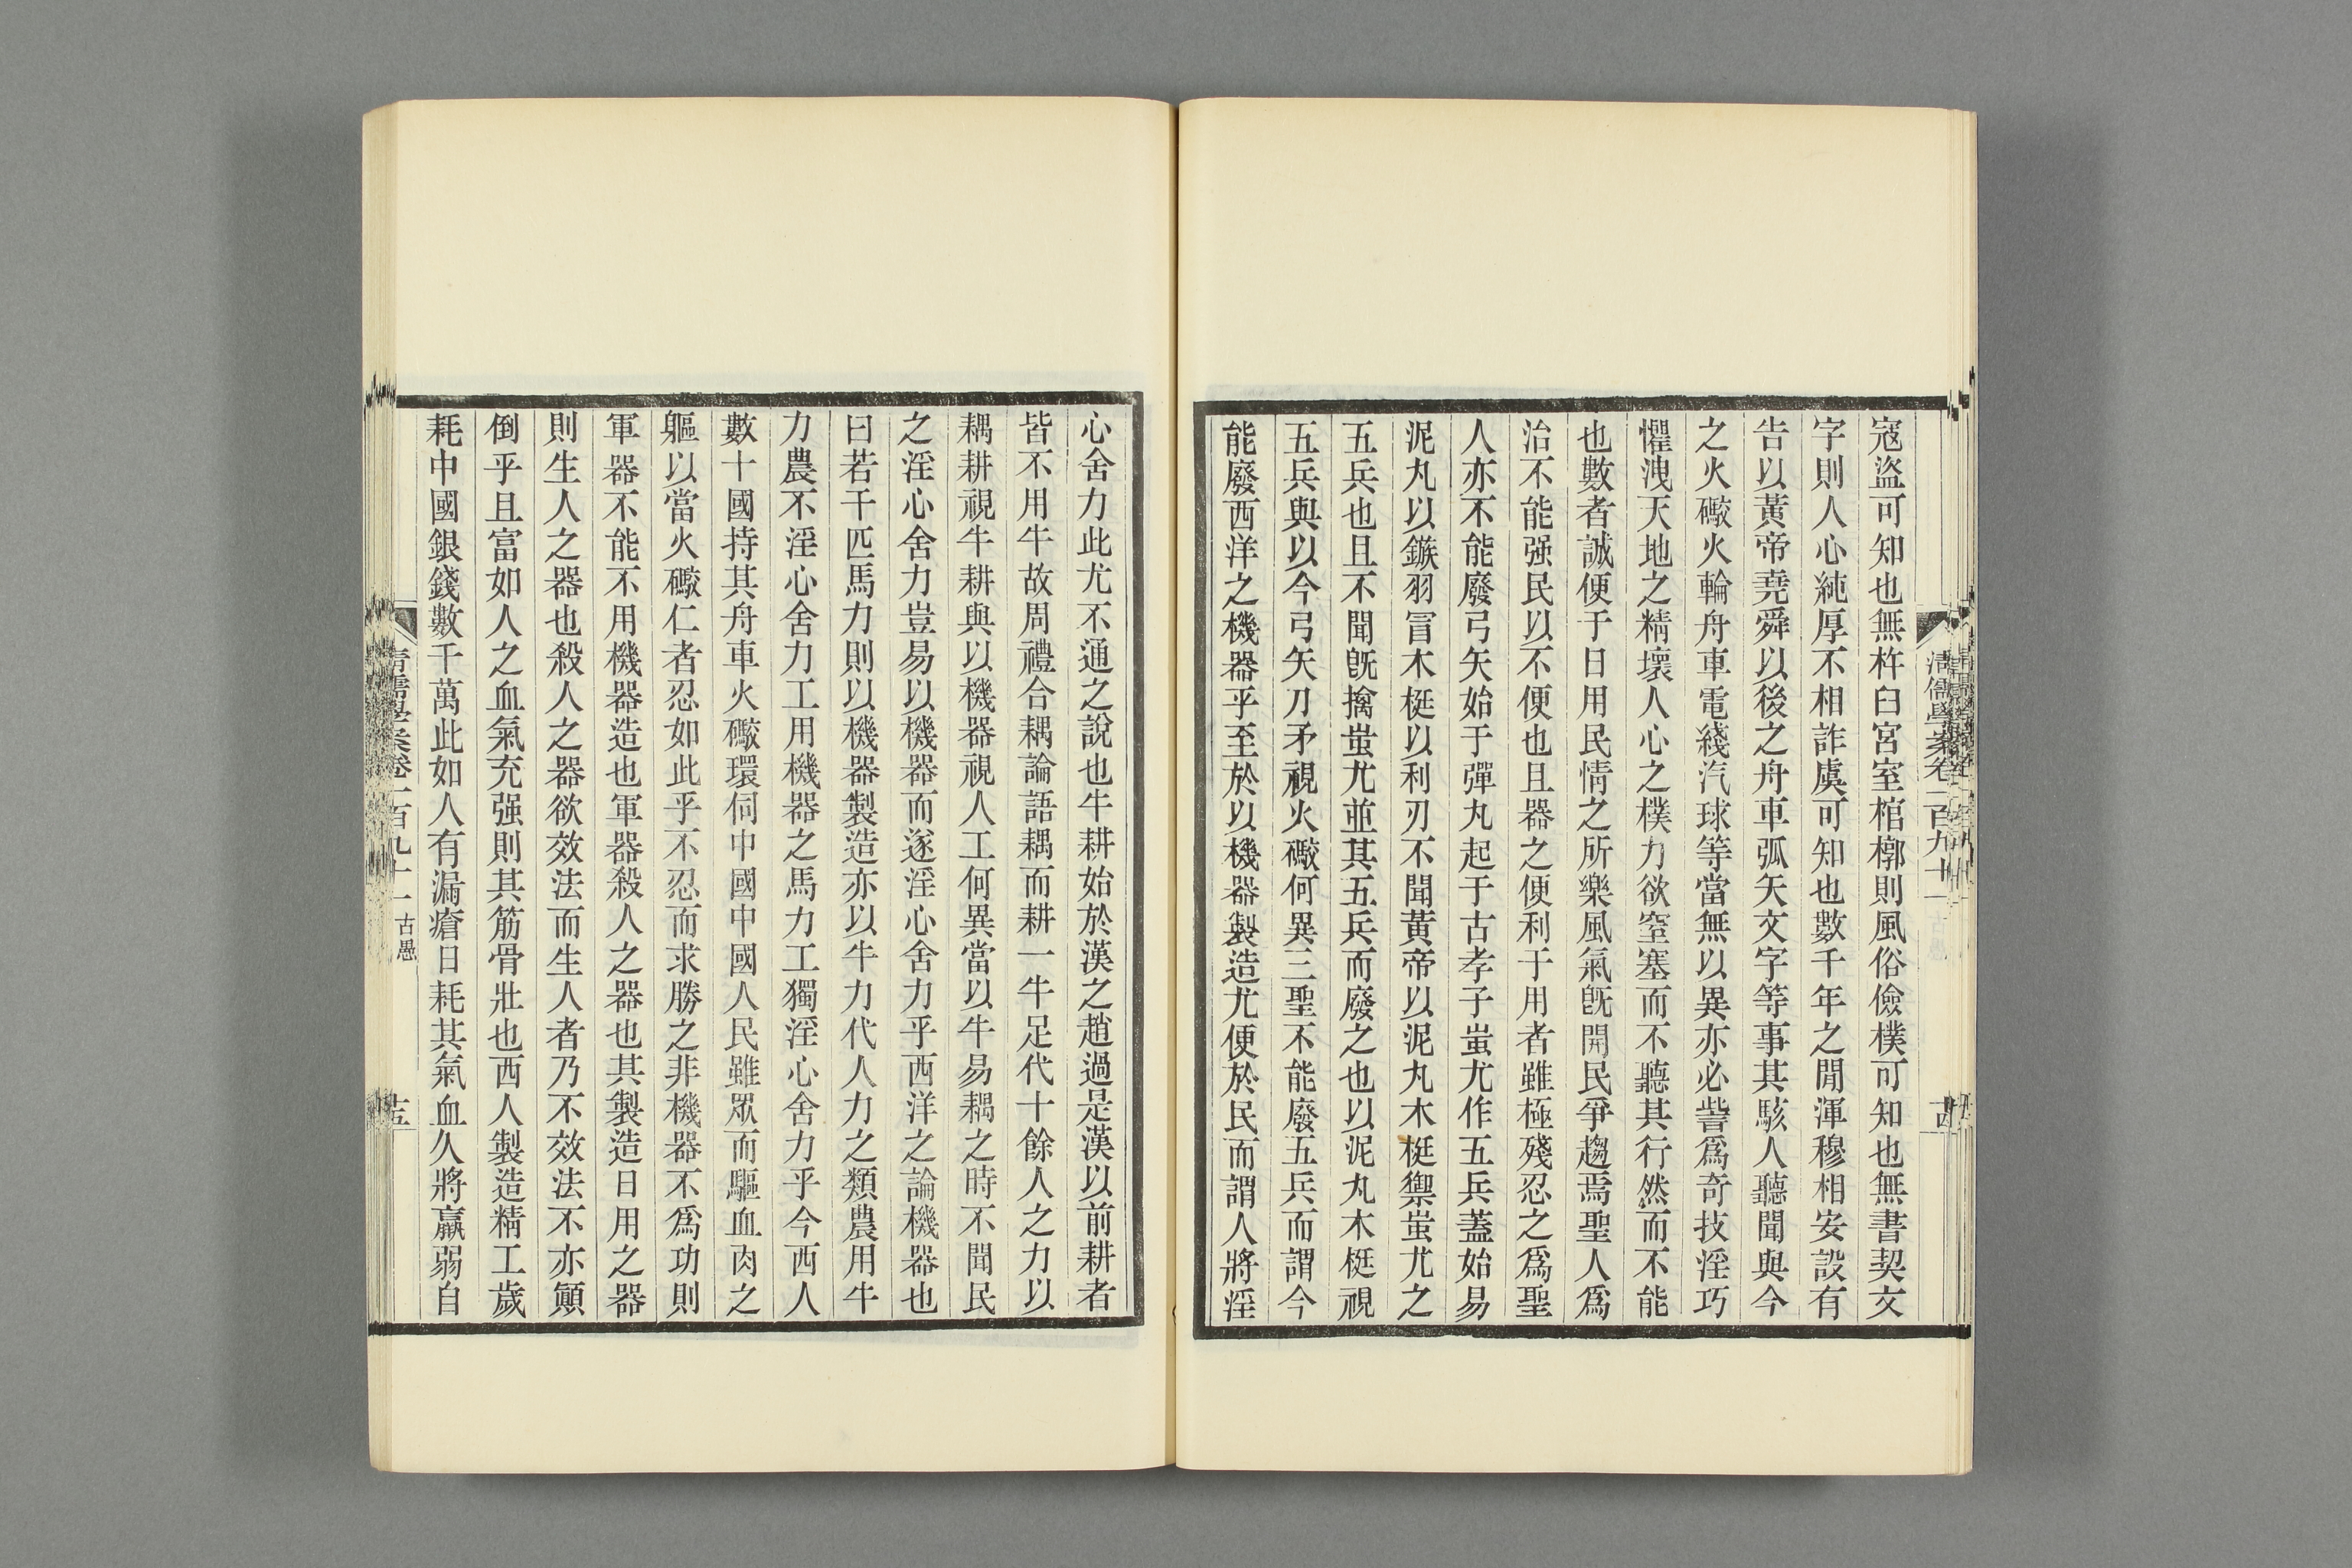 清儒學案卷一百九十一
十四
寇盜可知也無杵臼宮室棺槨則風俗儉樸可知也無書契文
字則人心純厚不相詐虞可知也數千年之閒渾穆相安設有
告以黃帝堯舜以後之舟車弧矢文字等事其駭人聽聞與今
之火礮火輪舟車電綫汽球等當無以異亦必訾爲奇技淫巧
懼洩天地之精壞人心之樸力欲窒塞而不聽其行然而不能
也數者誠便于日用民情之所樂風氣旣開民爭趨焉聖人爲
治不能强民以不便也且器之便利于用者雖極殘忍之爲聖
人亦不能廢弓矢始于彈丸起于古孝子蚩尤作五兵蓋始易
泥丸以鏃羽冒木梃以利刃不聞黃帝以泥丸木梃禦蚩尤之
五兵也且不聞旣擒蚩尤並其五兵而廢之也以泥丸木梃視
五兵與以今弓矢刀矛視火礮何異三聖不能廢五兵而謂今
能廢西洋之機器乎至於以機器製造尤便於民而謂人將淫
心舍力此尤不通之說也牛耕始於漢之趙過是漢以前耕者
皆不用牛故周禮合耦論語耦而耕一牛足代十餘人之力以
耦耕視牛耕與以機器視人工何異當以牛易耦之時不聞民
之淫心舍力豈易以機器而遂淫心舍力乎西洋之論機器也
曰若干匹馬力則以機器製造亦以牛力代人力之類農用牛
力農不淫心舍力工用機器之馬力工獨淫心舍力乎今西人
數十國持其舟車火礮環伺中國中國人民雖眾而驅血肉之
軀以當火礮仁者忍如此乎不忍而求勝之非機器不爲功則
軍器不能不用機器造也軍器殺人之器也其製造日用之器
則生人之器也殺人之器欲效法而生人者乃不效法不亦顚
倒乎且富如人之血氣充强則其筋骨壯也西人製造精工歲
耗中國銀錢數千萬此如人有漏瘡日耗其氣血久將羸弱自
清儒學案卷一百九十一 古愚
十五